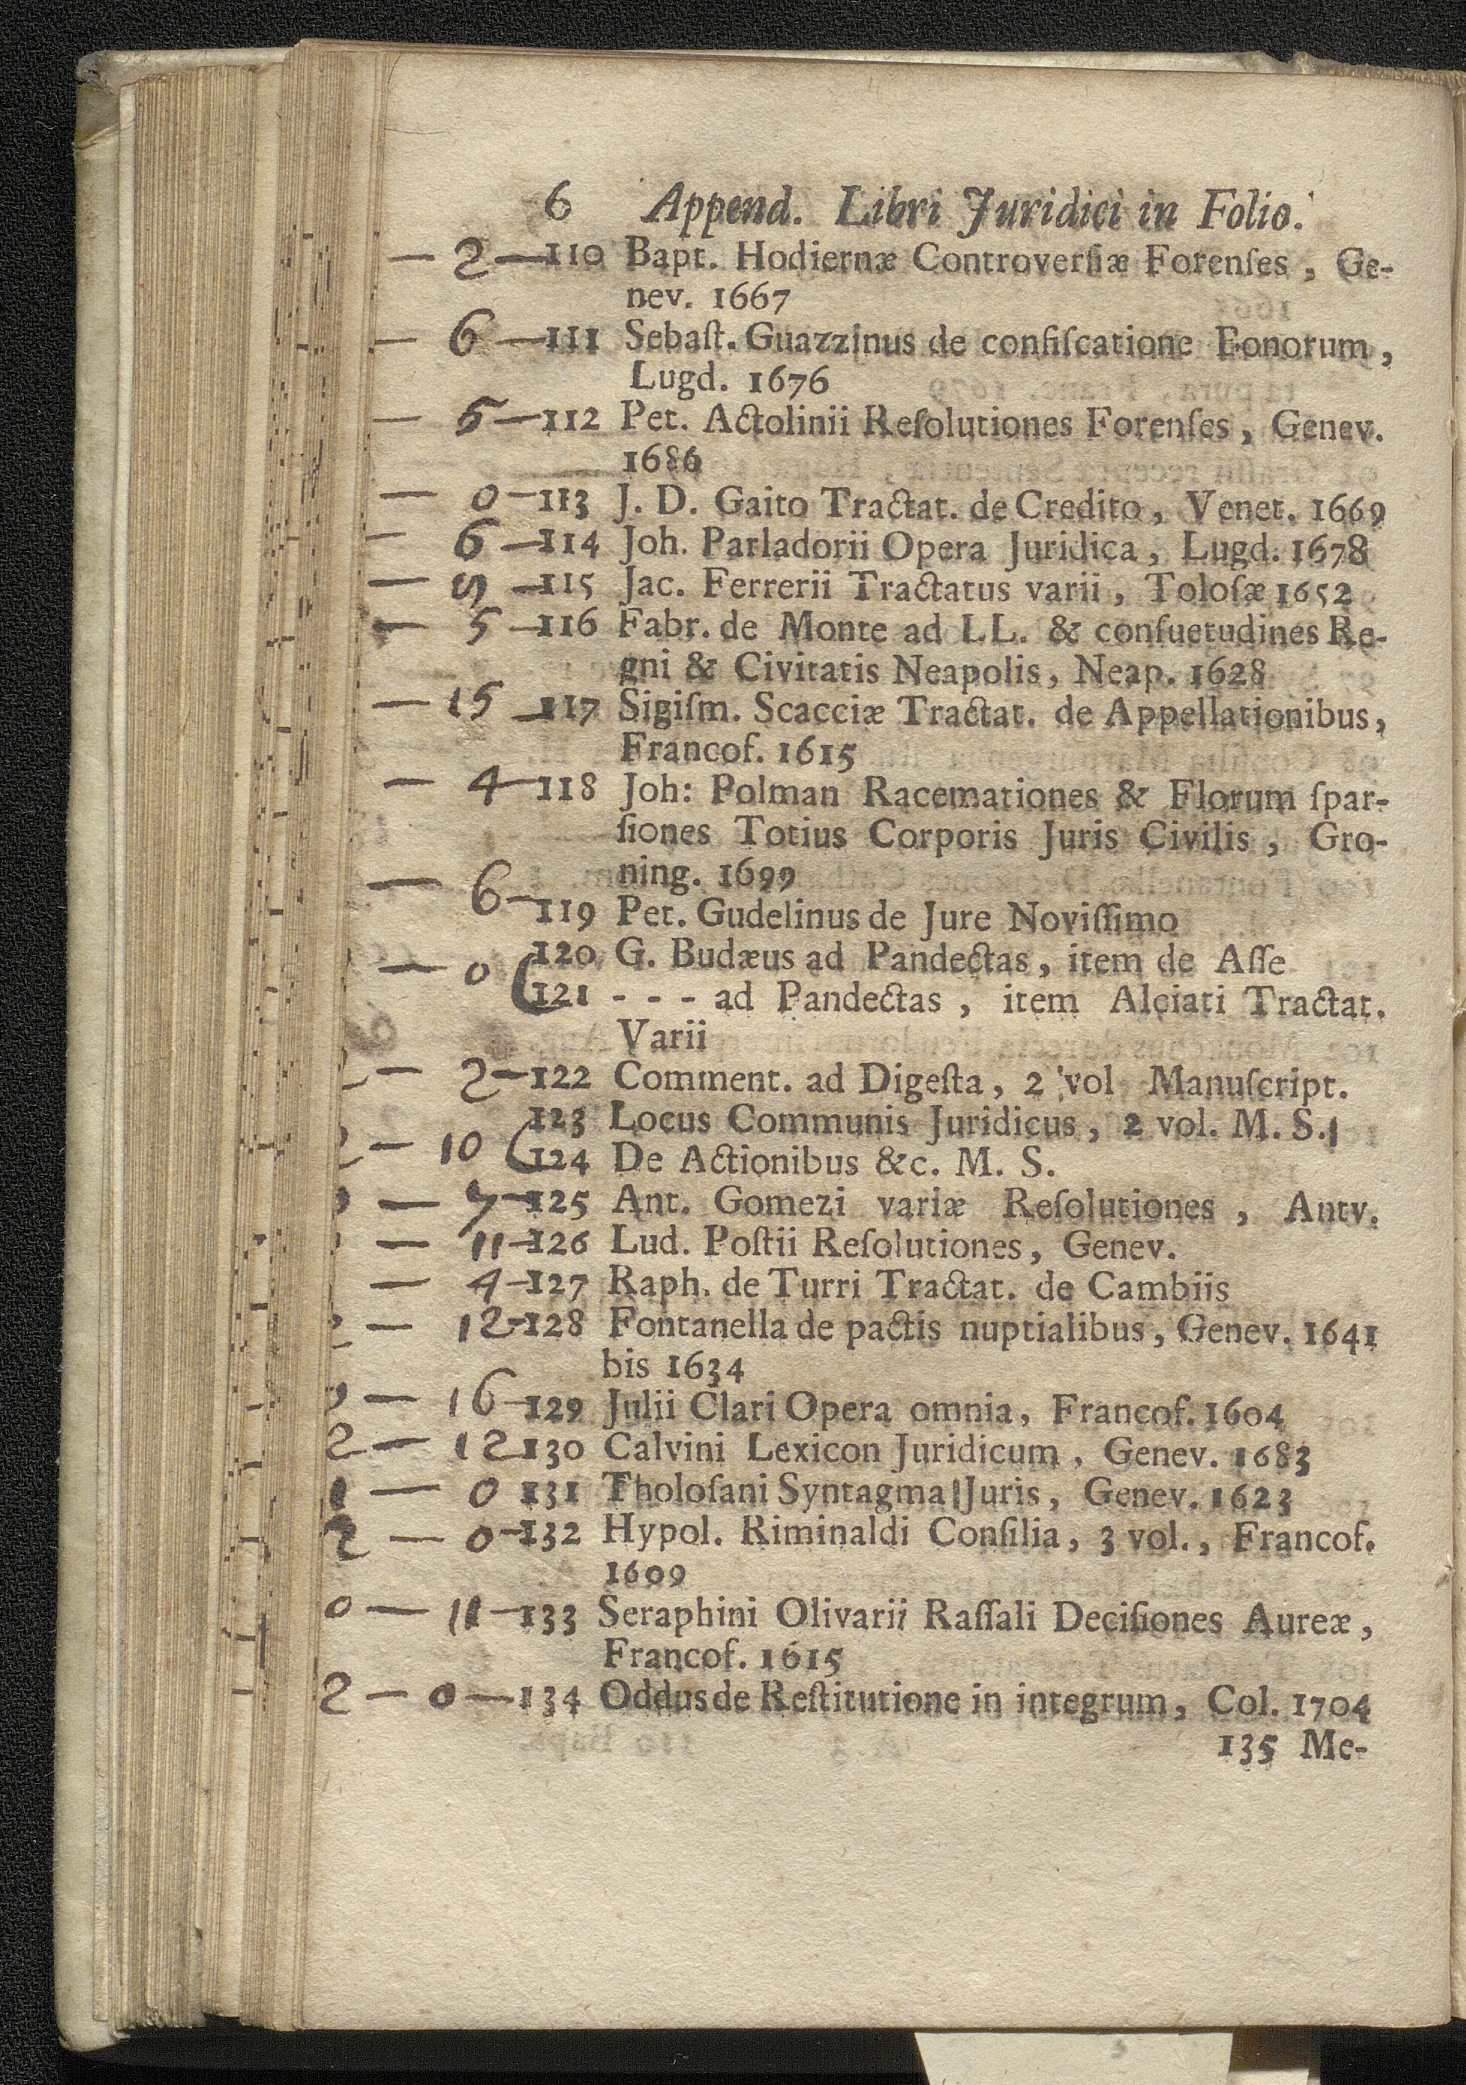 6 Append. Libri Juridici in Folio.
— 2 — 110 Bapt. Hodiernæ Controverſiæ Forenſes, Ge-
nev. 1667
— 6 — 111 Sebaſt. Guazzinus de confiſcatione Bonorum,
Lugd. 1676
— 5 — 112 Pet. Actolinii Reſolutiones Forenſes, Genev.
1686
— 0 — 113 J. D. Gaito Tractat. de Credito, Venet. 1669
— 6 — 114 Joh. Parladorii Opera Juridica, Lugd. 1678
— — 115 Jac. Ferrerii Tractatus varii, Toloſæ 1652
— 5 — 116 Fabr. de Monte ad LL. & conſuetudines Re-
gni & Civitatis Neapolis, Neap. 1628
— 15 — 117 Sigiſm. Scacciæ Tractat. de Appellationibus,
Francof. 1615
— 4 — 118 Joh: Polman Racemationes & Florum ſpar-
ſiones Totius Corporis Juris Civilis, Gro-
ning. 1699
— 6 — 119 Pet. Gudelinus de Jure Noviſſimo
— 0 ( 120 G. Budæus ad Pandectas, item de Aſſe
121 - - - ad Pandectas, item Alciati Tractat.
Varii
— 2 — 122 Comment. ad Digeſta, 2 vol Manuſcript.
123 Locus Communis Juridicus, 2 vol. M. S.
— 10 ( 124 De Actionibus &c. M. S.
— 7 — 125 Ant. Gomezi variæ Reſolutiones, Antv.
— 11 — 126 Lud. Poſtii Reſolutiones, Genev.
— 4 — 127 Raph. de Turri Tractat. de Cambiis
— 12 - 128 Fontanella de pactis nuptialibus, Genev. 1641
bis 1634
0 — 16 — 129 Julii Clari Opera omnia, Francof. 1604
2 — 12 130 Calvini Lexicon Juridicum, Genev. 1683
1 — 0 131 Tholoſani Syntagma Juris, Genev. 1623
2 — 0 — 132 Hypol. Riminaldi Conſilia, 3 vol., Francof.
1609
0 — 11 — 133 Seraphini Olivarii Raſſali Deciſiones Aureæ,
Francof. 1615
2 — 0 — 134 Oddus de Reſtitutione in integrum, Col. 1704
135 Me-